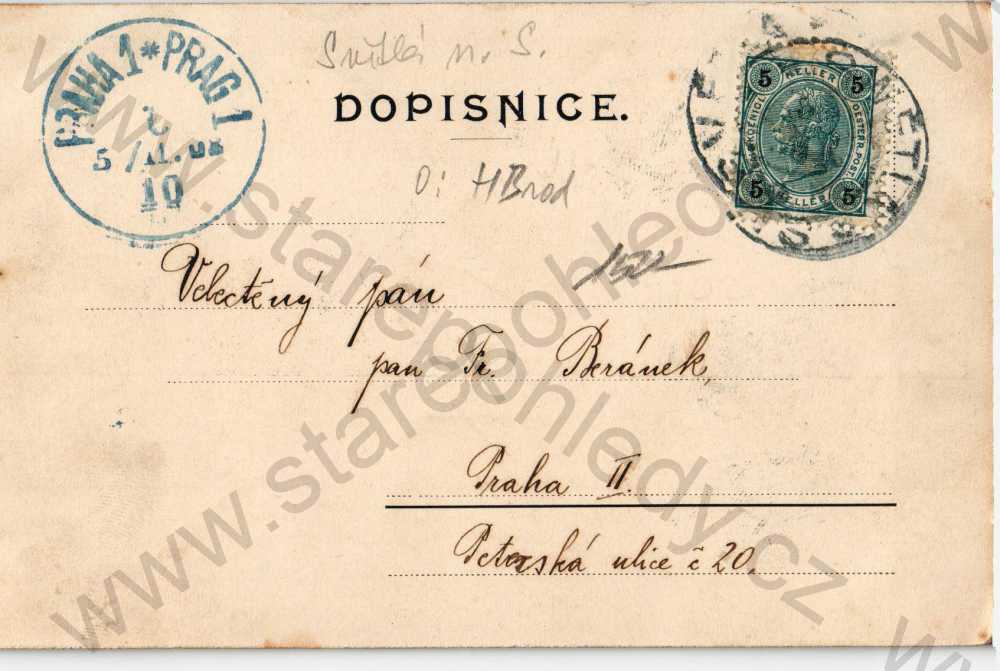 PRAHA 1 * PRAG 1
5/
10
Světlá n. S.
DOPISNICE.
O: HBrod
5 HELLER 5
KAIS. KOENIGL. OESTERR. POST
5 HELLER 5
Velectěný pán
pan Fr. Beránek,
Praha II.
Peterská ulice č 20.
www.starepohledy.cz
www.starepohledy.cz